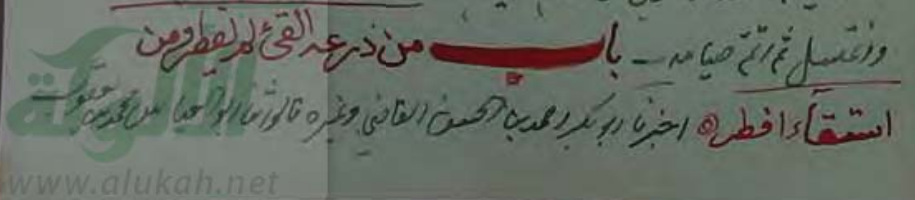 واغتسل ثم أتم صيامه باب من ذرعه القئ لم يفطر ومن
استقاء افطر اخبرنا ابو بكر احمد بن الحسن القاضي وغيره قالوا ثنا ابو العباس محمد بن يعقوب
الألوكة
www.alukah.net